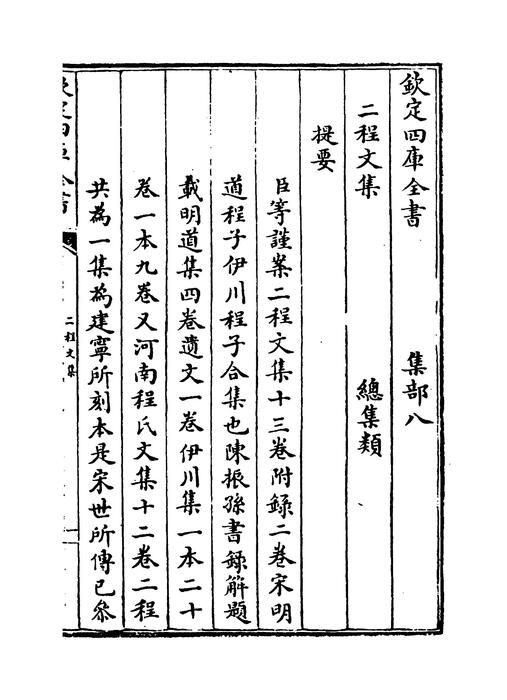 欽定四庫全書 集部八
二程文集 總集類
提要
臣等謹案二程文集十三卷附錄二卷宋明
道程子伊川程子合集也陳振孫書錄解題
載明道集四卷遺文一卷伊川集一本二十
卷一本九卷又河南程氏文集十二卷二程
共為一集為建寧所刻本是宋世所傳已叅
欽定四庫全書
二程文集